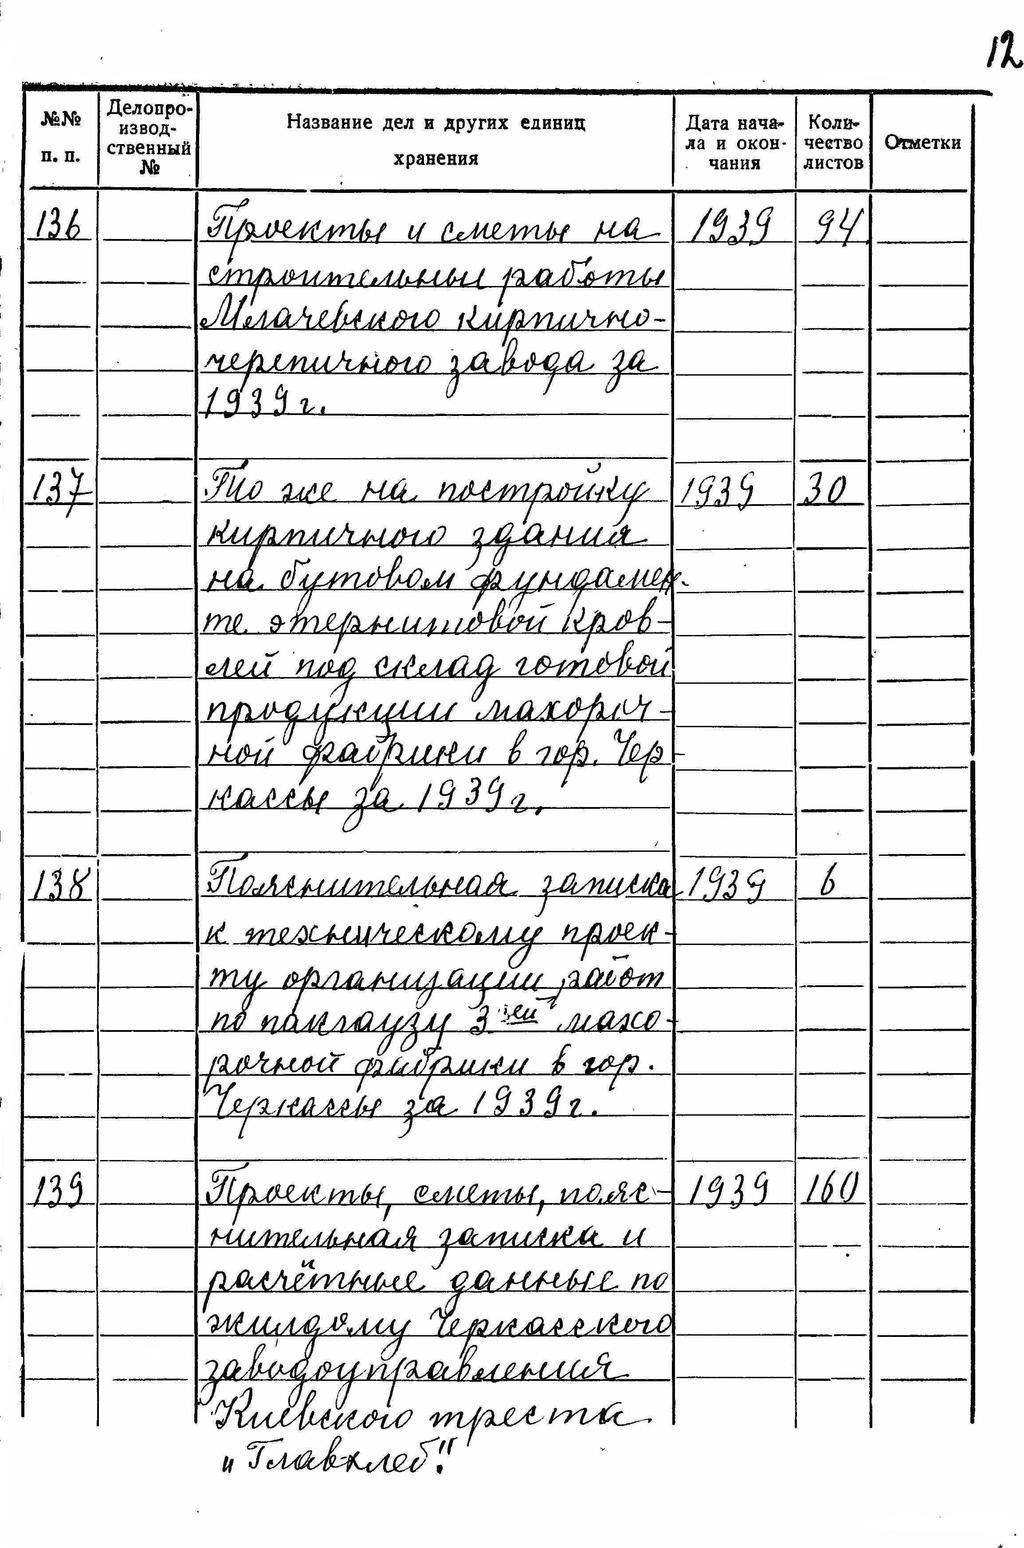 12
№№ п. п.
Делопро-изводственный №
Название дел и других единиц хранения
Дата нача-ла и окон-чания
Коли-чество листов
Отметки
136 Проекты и сметы на 1939 94
строительные работы
Млачевского кирпично-
черепичного завода за
1939 г.
137 То же на постройку 1939 30
кирпичного здания
на бутовом фундамен-
те этернитовой кров-
лей под склад готовой
продукции махороч-
ной фабрики в гор. Чер-
кассы за 1939 г.
138 Пояснительная записка 1939 6
к техническому проек-
ту организации работ
по пакгаузу 3-ей махо-
рочной фабрики в гор.
Черкассы за 1939 г.
139 Проекты, сметы, пояс- 1939 160
нительная записка и
расчётные данные по
жилдому Черкасского
заводоуправления
Киевского треста
"Главхлеб".